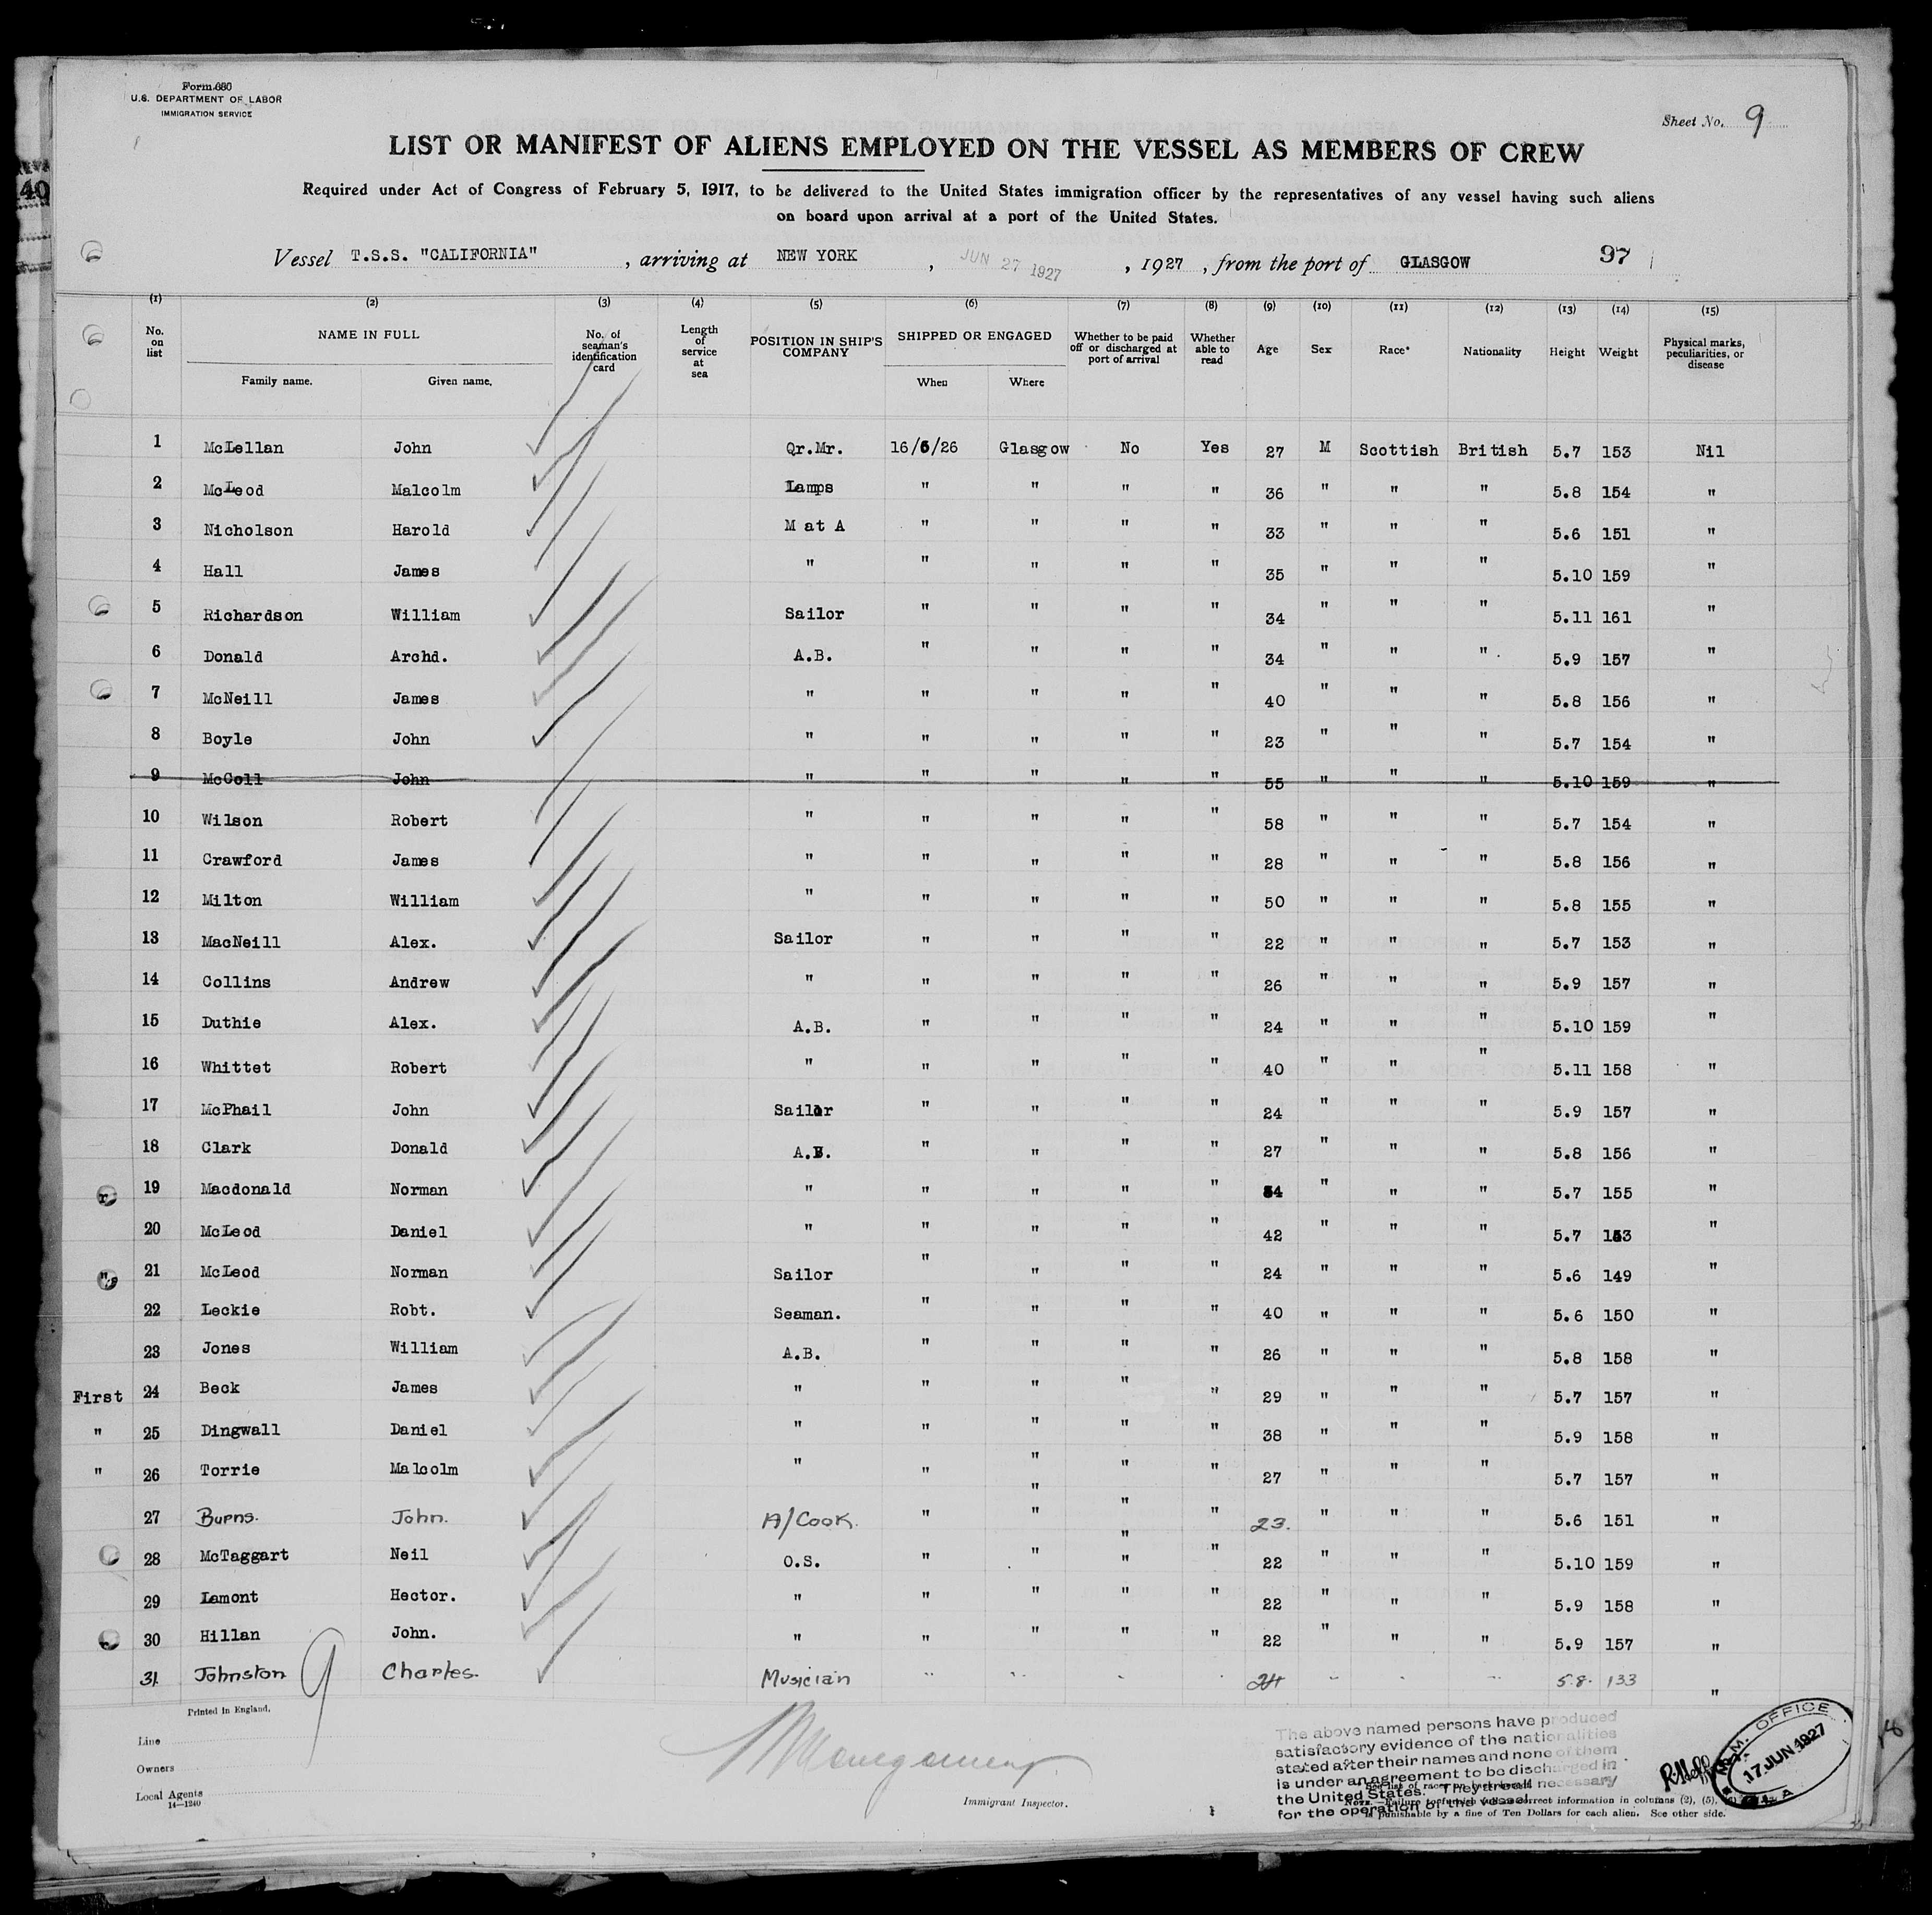 Form 680
U.S. DEPARTMENT OF LABOR
IMMIGRATION SERVICE
Sheet No. 9
LIST OR MANIFEST OF ALIENS EMPLOYED ON THE VESSEL AS MEMBERS OF CREW
Required under Act of Congress of February 5, 1917, to be delivered to the United States immigration officer by the representatives of any vessel having such aliens
on board upon arrival at a port of the United States.
Vessel T.S.S. "CALIFORNIA" , arriving at NEW YORK , JUN 27 1927 , 1927 , from the port of GLASGOW 97
(1) (2) (3) (4) (5) (6) (7) (8) (9) (10) (11) (12) (13) (14) (15)
No. on list NAME IN FULL Family name. Given name. No. of seaman's identification card Length of service at sea POSITION IN SHIP'S COMPANY SHIPPED OR ENGAGED When Where Whether to be paid off or discharged at port of arrival Whether able to read Age Sex Race* Nationality Height Weight Physical marks, peculiarities, or disease
1 McLellan John Qr.Mr. 16/6/26 Glasgow No Yes 27 M Scottish British 5.7 153 Nil
2 McLeod Malcolm Lamps " " " " 36 " " " 5.8 154 "
3 Nicholson Harold M at A " " " " 33 " " " 5.6 151 "
4 Hall James " " " " " 35 " " " 5.10 159 "
5 Richardson William Sailor " " " " 34 " " " 5.11 161 "
6 Donald Archd. A.B. " " " " 34 " " " 5.9 157 "
7 McNeill James " " " " " 40 " " " 5.8 156 "
8 Boyle John " " " " " 23 " " " 5.7 154 "
9 McColl John " " " " " 55 " " " 5.10 159 "
10 Wilson Robert " " " " " 58 " " " 5.7 154 "
11 Crawford James " " " " " 28 " " " 5.8 156 "
12 Milton William " " " " " 50 " " " 5.8 155 "
13 MacNeill Alex. Sailor " " " " 22 " " " 5.7 153 "
14 Collins Andrew " " " " " 26 " " " 5.9 157 "
15 Duthie Alex. A.B. " " " " 24 " " " 5.10 159 "
16 Whittet Robert " " " " " 40 " " " 5.11 158 "
17 McPhail John Sailor " " " " 24 " " " 5.9 157 "
18 Clark Donald A.B. " " " " 27 " " " 5.8 156 "
19 Macdonald Norman " " " " " " " " 5.7 155 "
20 McLeod Daniel " " " " " 42 " " " 5.7 "
21 McLeod Norman Sailor " " " " 24 " " " 5.6 149 "
22 Leckie Robt. Seaman. " " " " 40 " " " 5.6 150 "
23 Jones William A.B. " " " " 26 " " " 5.8 158 "
First 24 Beck James " " " " " 29 " " " 5.7 157 "
" 25 Dingwall Daniel " " " " " 38 " " " 5.9 158 "
" 26 Torrie Malcolm " " " " " 27 " " " 5.7 157 "
27 Burns. John. A/Cook. " " " " 23. " " " 5.6 151 "
28 McTaggart Neil O.S. " " " " 22 " " " 5.10 159 "
29 Lamont Hector. " " " " " 22 " " " 5.9 158 "
30 Hillan John. " " " " " 22 " " " 5.9 157 "
31 Johnston Charles. Musician " " " " 24 " " " 5.8. 133 "
9
Printed in England.
Line
Owners
Local Agents
14—1240
Immigrant Inspector.
The above named persons have produced
satisfactory evidence of the nationalities
stated after their names and none of them
is under an agreement to be discharged in
the United States. They are all necessary
for the operation of the vessel.
See list of races on back hereof
NOTE.—Failure to furnish full or correct information in columns (2), (5),
is punishable by a fine of Ten Dollars for each alien. See other side.
M.M. OFFICE
17 JUN 1927